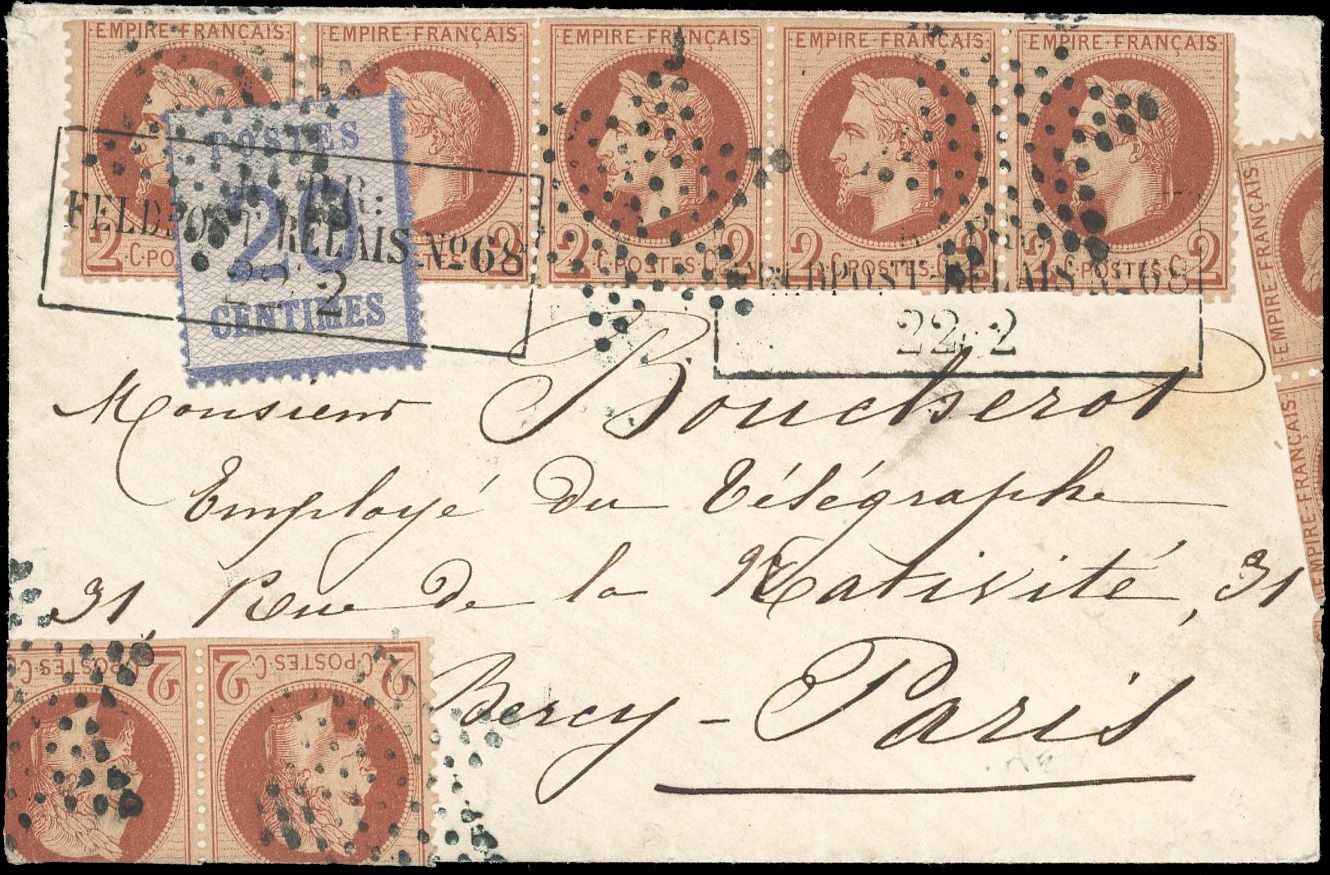 EMPIRE·FRANÇAIS EMPIRE·FRANÇAIS EMPIRE·FRANÇAIS EMPIRE·FRANÇAIS EMPIRE·FRANÇAIS
2 C·PO 2 2 ·C·POSTES·C· 2 2 ·C·POSTES·C· 2 2 ·C·POSTES·C· 2
POSTES
20
CENTIMES
K.P.R:
FELDPOST RELAIS No 68
22 2
FELDPOST-RELAIS No 68
22 2
EMPIRE·FRANÇAIS
EMPIRE·FRANÇAIS
Monsieur Boucherot
Employé du Télégraphe
31, Rue de la Nativité, 31
Bercy - Paris
C·POSTES·C· 2 2 ·C·POSTES·C· 2